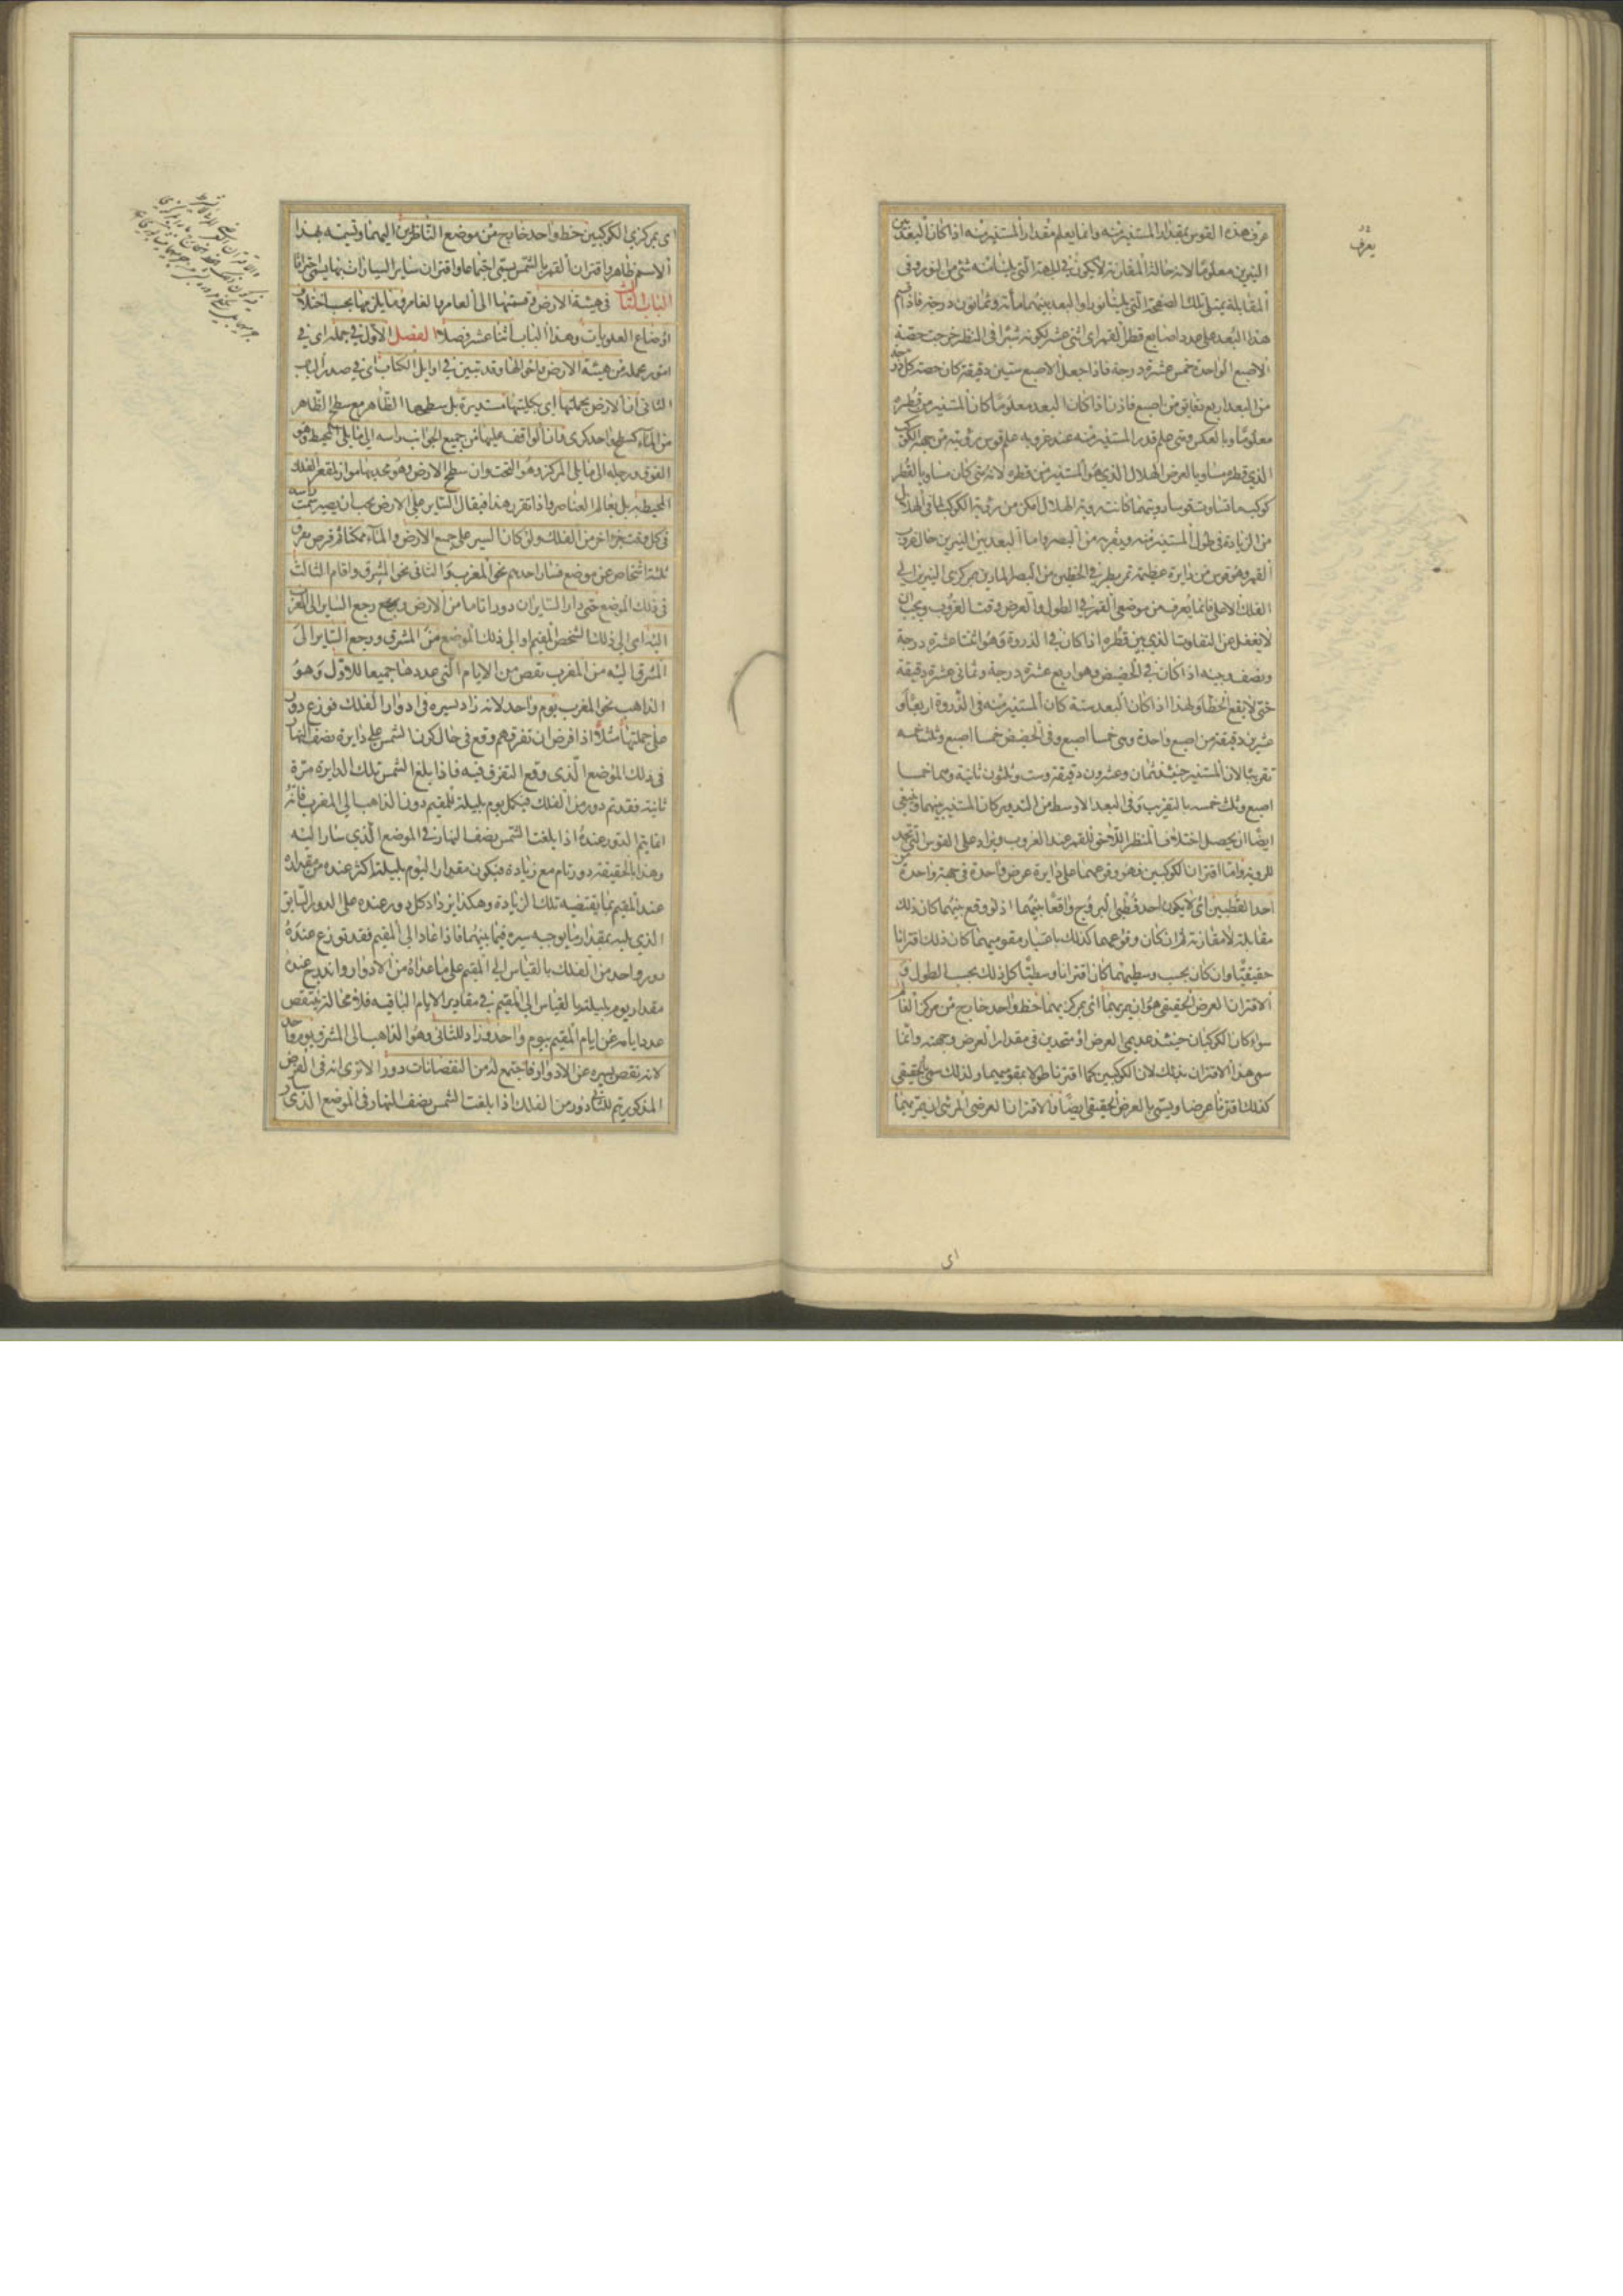 عرف هذه القوس بمقدار المستنير منه وانما يعلم مقدار المستنير منه اذا كان البعد بين
النيرين معلومًا لانه حالة المقارنة لا يكون في الجهة التي يلينا منه شئ من النور وفى
المقابلة يمتلى تلك الصفحة التى يلينا نورا والبعد بينهما مائة وثمانون درجة فاذا قسم
هذا البعد على عدد اصابع قطر القمر اى اثنى عشر لكونه شبرا فى النظر خرجت حصة
الاصبع الواحدة خمس عشرة درجة فاذا جعل الاصبع ستين دقيقة كان حصة كل درجة
من البعد اربع دقايق من اصبع فاذن اذا كان البعد معلومًا كان المستنير من قطره
معلومًا وبالعكس ومتى علم قدر المستنير منه عند غروبه علم قوس رؤيته من جهة الكوكب
الذي قطره مساو يا لعرض الهلال الذي هو المستنير من قطره لانه متى كان مساويا لقطر
كوكب ما تساوت قوسا رويتهما كانت روية الهلال امكن من رؤية الكوكب لما فى الهلال
من الزيادة فى طول المستنير منه ويقربه من البصر واما البعد بين النيرين حال غروب
القمر وهو قوس من دايرة عظيمة تمر بطرفى الخطين من البصر المارين بمركزى النيرين الى
الفلك الاعلى فانما يعرف من موضعى القمر فى الطول والعرض وقت الغروب ويجب ان
لا يغفل عن التفاوت الذي بين قطره اذا كان في الذروة وهو اثنتا عشرة درجة
ونصف وبينه اذا كان في الحضيض وهو اربع عشرة درجة وثمانى عشرة دقيقة
حتى لا يقع الخطأ ولهذا اذا كان البعد ستة كان المستنير منه فى الذروة اربعًا و
عشرين دقيقة من اصبع واحدة وهى خمسا اصبع وفى الحضيض خمسا اصبع وثلثا خمسه
تقريبًا لان المستنير حينئذ ثمان وعشرون دقيقة وست وثلثون ثانية وهما خمسا
اصبع وثلث خمسه بالتقريب وفى البعد الاوسط من التدوير كان المستنير بينهما وينبغى
ايضًا ان يحصل اختلاف المنظر اللاحق للقمر عند الغروب ويزاد على القوس التى تحد
للروية واما اقتران الكوكبين فهو وقوعهما على دايرة عرض واحدة فى جهة واحدة من
احد القطبين اى لا يكون احد قطبى البروج واقعًا بينهما اذ لو وقع بينهما كان ذلك
مقابلة لا مقارنة ثم ان كان وقوعهما كذلك باعتبار مقوميهما كان ذلك اقترانا
حقيقيًا وان كان بحسب وسطيهما كان اقترانا وسطيًا كل ذلك بحسب الطول و
الاقتران العرضى الحقيقى هو ان يمر بهما اى بمركزيهما خط واحد خارج من مركز العالم
سواء كان الكوكبان حينئذ عديمى العرض او متحدين فى مقدار العرض وجهته وانما
سمى هذا الاقتران بذلك لان الكوكبين كما اقترنا طولا بمقوميهما ولذلك سمى بالحقيقى
كذلك اقترنا عرضا ويسمى بالعرض الحقيقى ايضًا والاقتران العرضى المرئى ان يمر بهما
يعرف
اى
اى بمركزي الكوكبين خط واحد خارج من موضع الناظرين اليهما وتسميته بهذا
الاسم ظاهر واقتران القمر بالشمس يسمى اجتماعا واقتران ساير السيارات بها يسمى احتراقا
الباب الثالث فى هيئة الارض وقسمتها الى العامر والغامر وما يلزمها بحسب اختلاف
اوضاع العلويات وهذا الباب اثنا عشر فصلا الفصل الاول فى جملة اى في
امور مجملة من هيئة الارض واحوالها وقد تبين في اوايل الكتاب اى فى صدر الباب
الثانى ان الارض بجملتها اى بكليتها مستديرة بل سطحها الظاهر مع سطح الظاهر
من الماء كسطح واحد كرى وان الواقف عليها من جميع الجوانب راسه الى ما يلى المحيط وهو
الفوق ورجله الى ما يلى المركز وهو التحت وان سطح الارض وهو محدبها مواز لمقعر الفلك
المحيط به بل بعالم العناصر واذا تقرر هذا فيقال الساير على الارض يجب ان يصير سمت راسه
فى كل وقت جزوا خر من الفلك ولو كان السير على جميع الارض والماء ممكنا ثم فرض تفرق
ثلثة اشخاص عن موضع فسار احدهم نحو المغرب والثانى نحو المشرق واقام الثالث
فى ذلك الموضع حتى دار السايران دورا تاما من الارض ورجع الساير الى المغرب
اليه اى الى ذلك الشخص المقيم او الى ذلك الموضع من المشرق ورجع الساير الى
المشرق اليه من المغرب نقص من الايام التى عدوها جميعا للاول وهو
الذاهب نحو المغرب يوم واحد لانه زاد بسيره فى ادوار الفلك فوزع دور
على جملتها مثلًا اذا فرض ان تفرقهم وقع فى حال كون الشمس على دايرة نصف النهار
فى ذلك الموضع الذى وقع التفرق فيه فاذا بلغ الشمس تلك الدايرة مرة
ثانية فقد تم دور من الفلك فيكمل يوم بليلته للمقيم دون الذاهب الى المغرب فانه
انما يتم الدور عنده اذا بلغت الشمس نصف النهار في الموضع الذي سار اليه
وهذا بالحقيقة دور تام مع زيادة فيكون مقدار اليوم بليلته اكثر عنده من مقداره
عند المقيم بما يقتضيه تلك الزيادة وهكذا يزداد كل دور عنده على الدور السابق
الذي يليه بمقدار ما يوجبه سيره فيما بينهما فاذا عادا الى المقيم فقد توزع عنده
دور واحد من الفلك بالقياس الى المقيم على ما عداه من الادوار واندرج عنده
مقدار يوم بليلته بالقياس الى المقيم فى مقادير الايام الباقية فلا محالة ينتقص
عدد ايامه عن ايام المقيم بيوم واحد وزاد للثانى وهو الذاهب الى المشرق يوم واحد
لانه نقص بسيره عن الادوار فاجتمع له من النقصانات دور الا ترى انه فى الفرض
المذكور يتم للثانى دور من الفلك اذا بلغت الشمس نصف النهار فى الموضع الذى